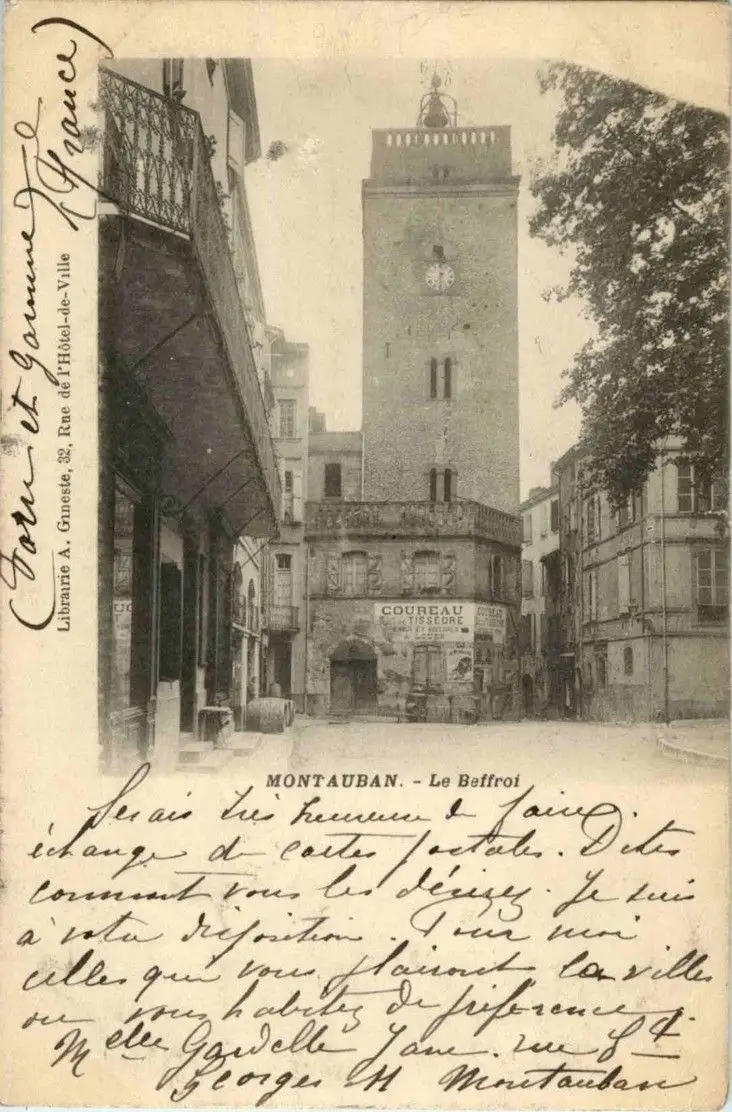 (Tarn et Garonne)
(France)
Librairie A. Gineste, 32, Rue de l'Hôtel-de-Ville
COUREAU
TISSEDRE
A LOUER
COUREAU
MONTAUBAN. - Le Beffroi
Serais très heureuse de faire
échange de cartes postales. Dites
comment vous les désirez. Je suis
à votre disposition. Pour moi
celles que vous plairont, la villes
ou vous habitez de préférence.
Melle Gardelle Jane. rue St
Georges Montauban